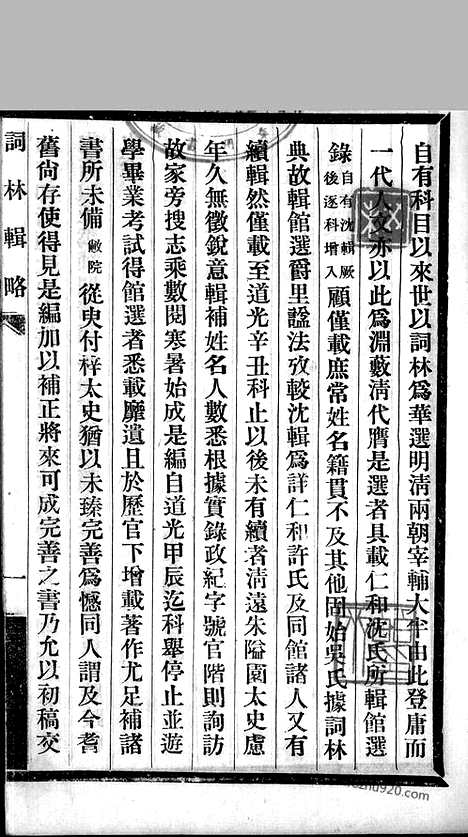 自有科目以來世以詞林爲華選明淸兩朝宰輔大半由此登庸而
一代人文亦以此爲淵藪淸代膺是選者具載仁和沈氏所輯館選
錄自有沈輯厥後逐科增入顧僅載庶常姓名籍貫不及其他固始吳氏據詞林
典故輯館選爵里諡法攷較沈輯爲詳仁和許氏及同館諸人又有
續輯然僅載至道光辛丑科止以後未有續者淸遠朱隘園太史慮
年久無徵銳意輯補姓名人數悉根據實錄政紀字號官階則詢訪
故家旁搜志乘數閱寒暑始成是編自道光甲辰迄科舉停止並遊
學畢業考試得館選者悉載靡遺且於歷官下增載著作尤足補諸
書所未備敝院從臾付梓太史猶以未臻完善爲憾同人謂及今耆
舊尙存使得見是編加以補正將來可成完善之書乃允以初稿交
詞林輯略
一